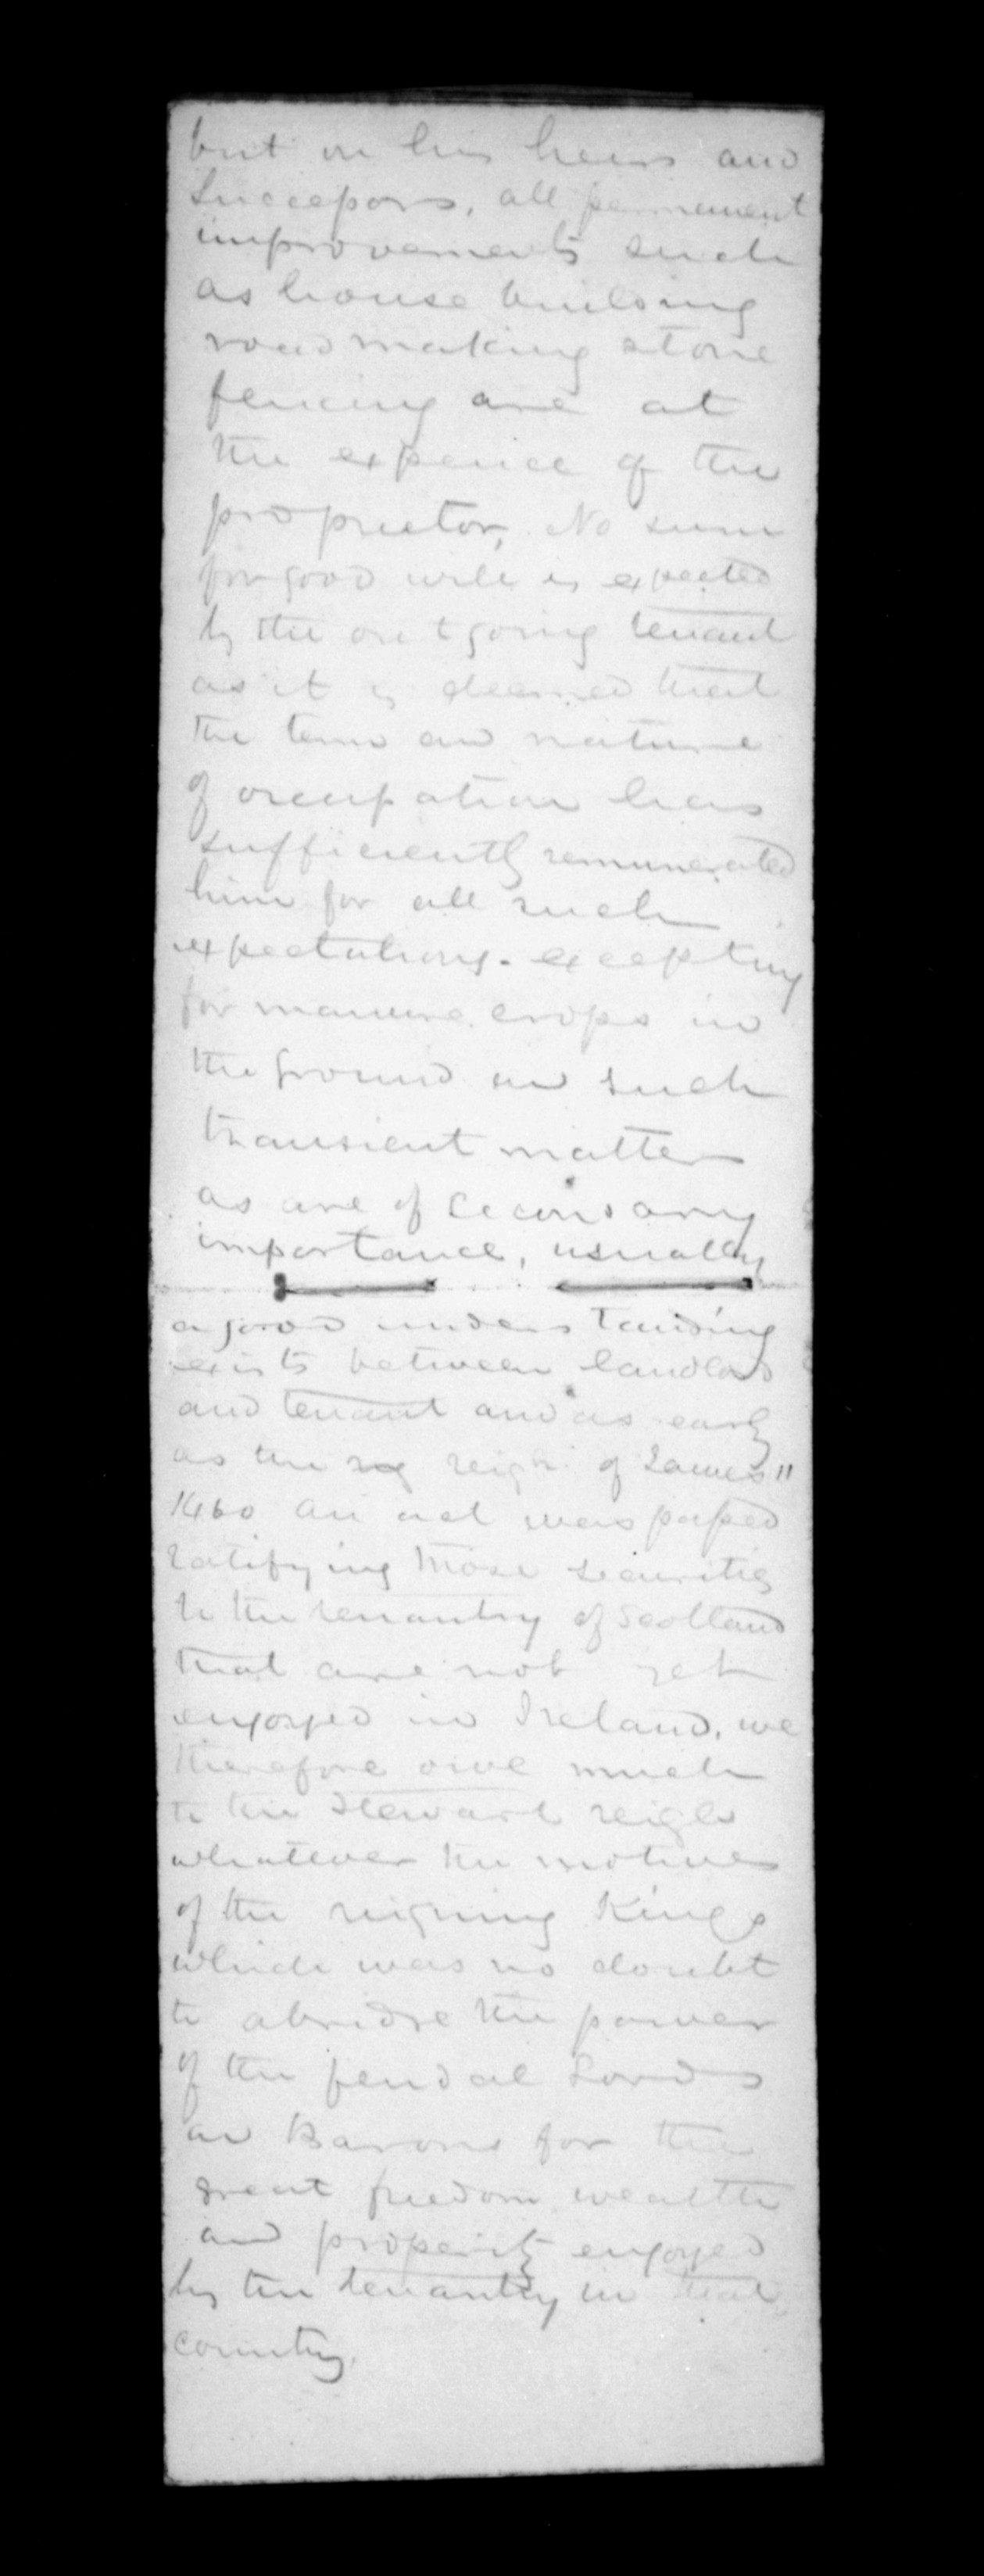 but on his heirs and
Successors, all permanent
improvements such
as house building
road making stone
fencing are at
the expence of the
proprietor, No sum
for good will is expected
by the out going tenant
as it is deemed that
the term and nature
of occupation has
sufficiently remunerated
him for all such
expectations. excepting
for manure crops in
the ground and such
transient matters
as are of secondary
importance, usually
a good understanding
exists between landlord
and tenant and as early
as the reign of James II
1460 an act was passed
ratifying those securities
to the tenantry of Scotland
that are not yet
enjoyed in Ireland, we
therefore owe much
to the Stewart
whatever the motives
of the reigning Kings
which was no doubt
to abridge the power
of the feudal Lords
and Barons for the
great freedom wealth
and properity enjoyed
by the tenantry in that
country.